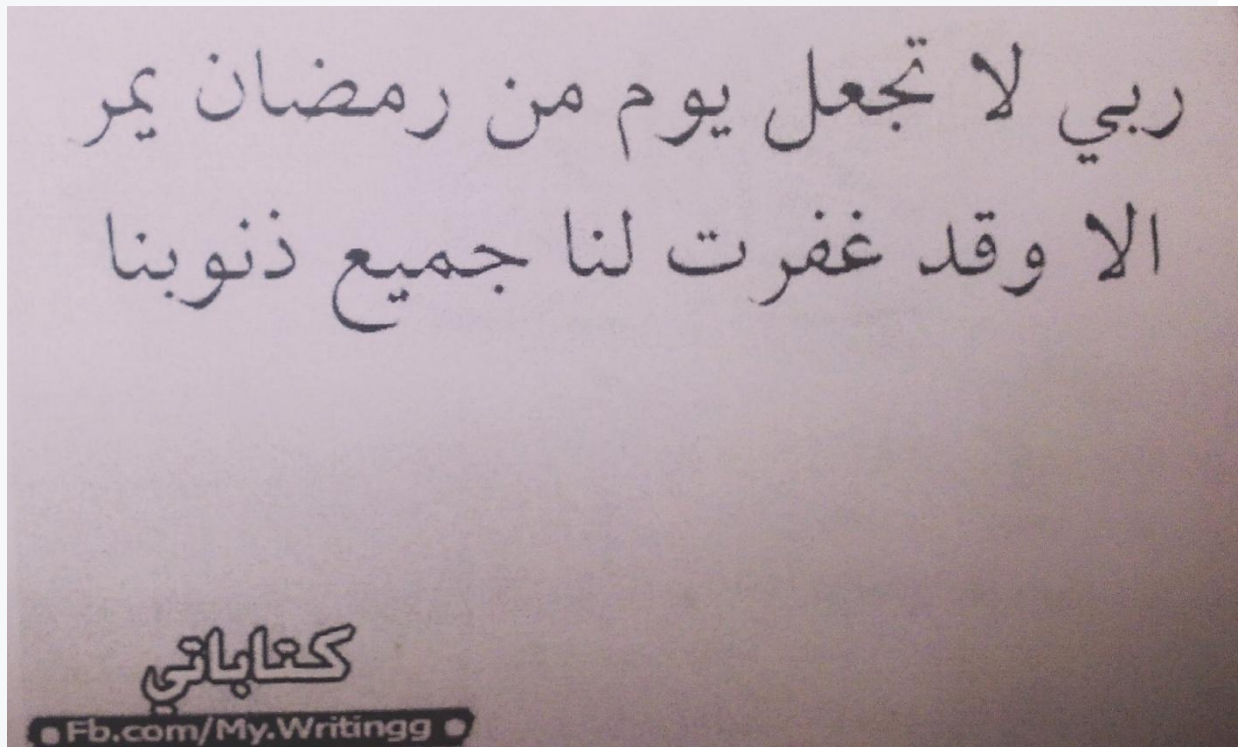 ربي لا تجعل يوم من رمضان يمر
الا وقد غفرت لنا جميع ذنوبنا
كتاباتي
Fb.com/My.Writingg